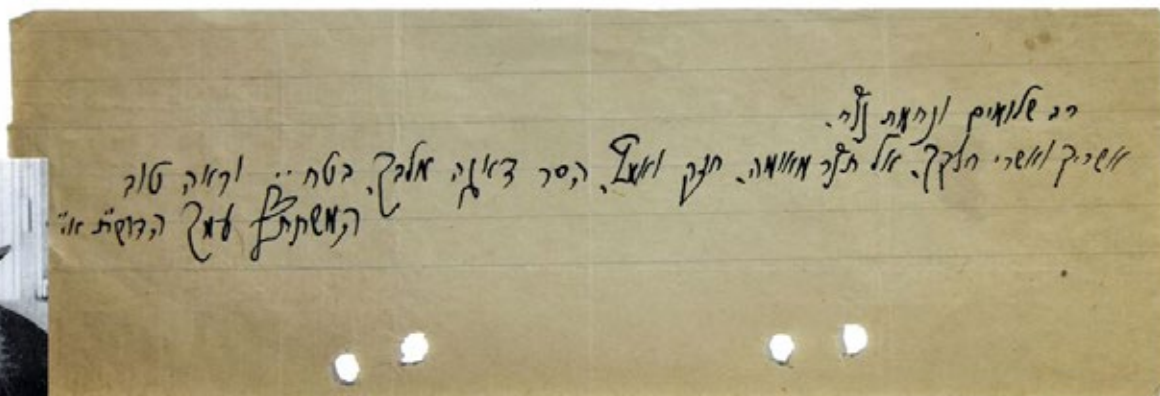 רב שלומים ונחמת נצח.
אשריך ואשרי חלקך. אל תירא מאומה. חזק ואמץ. הסר דאגה מלבך. בטח בד' וראה טוב
המשתתף עמך הדושית